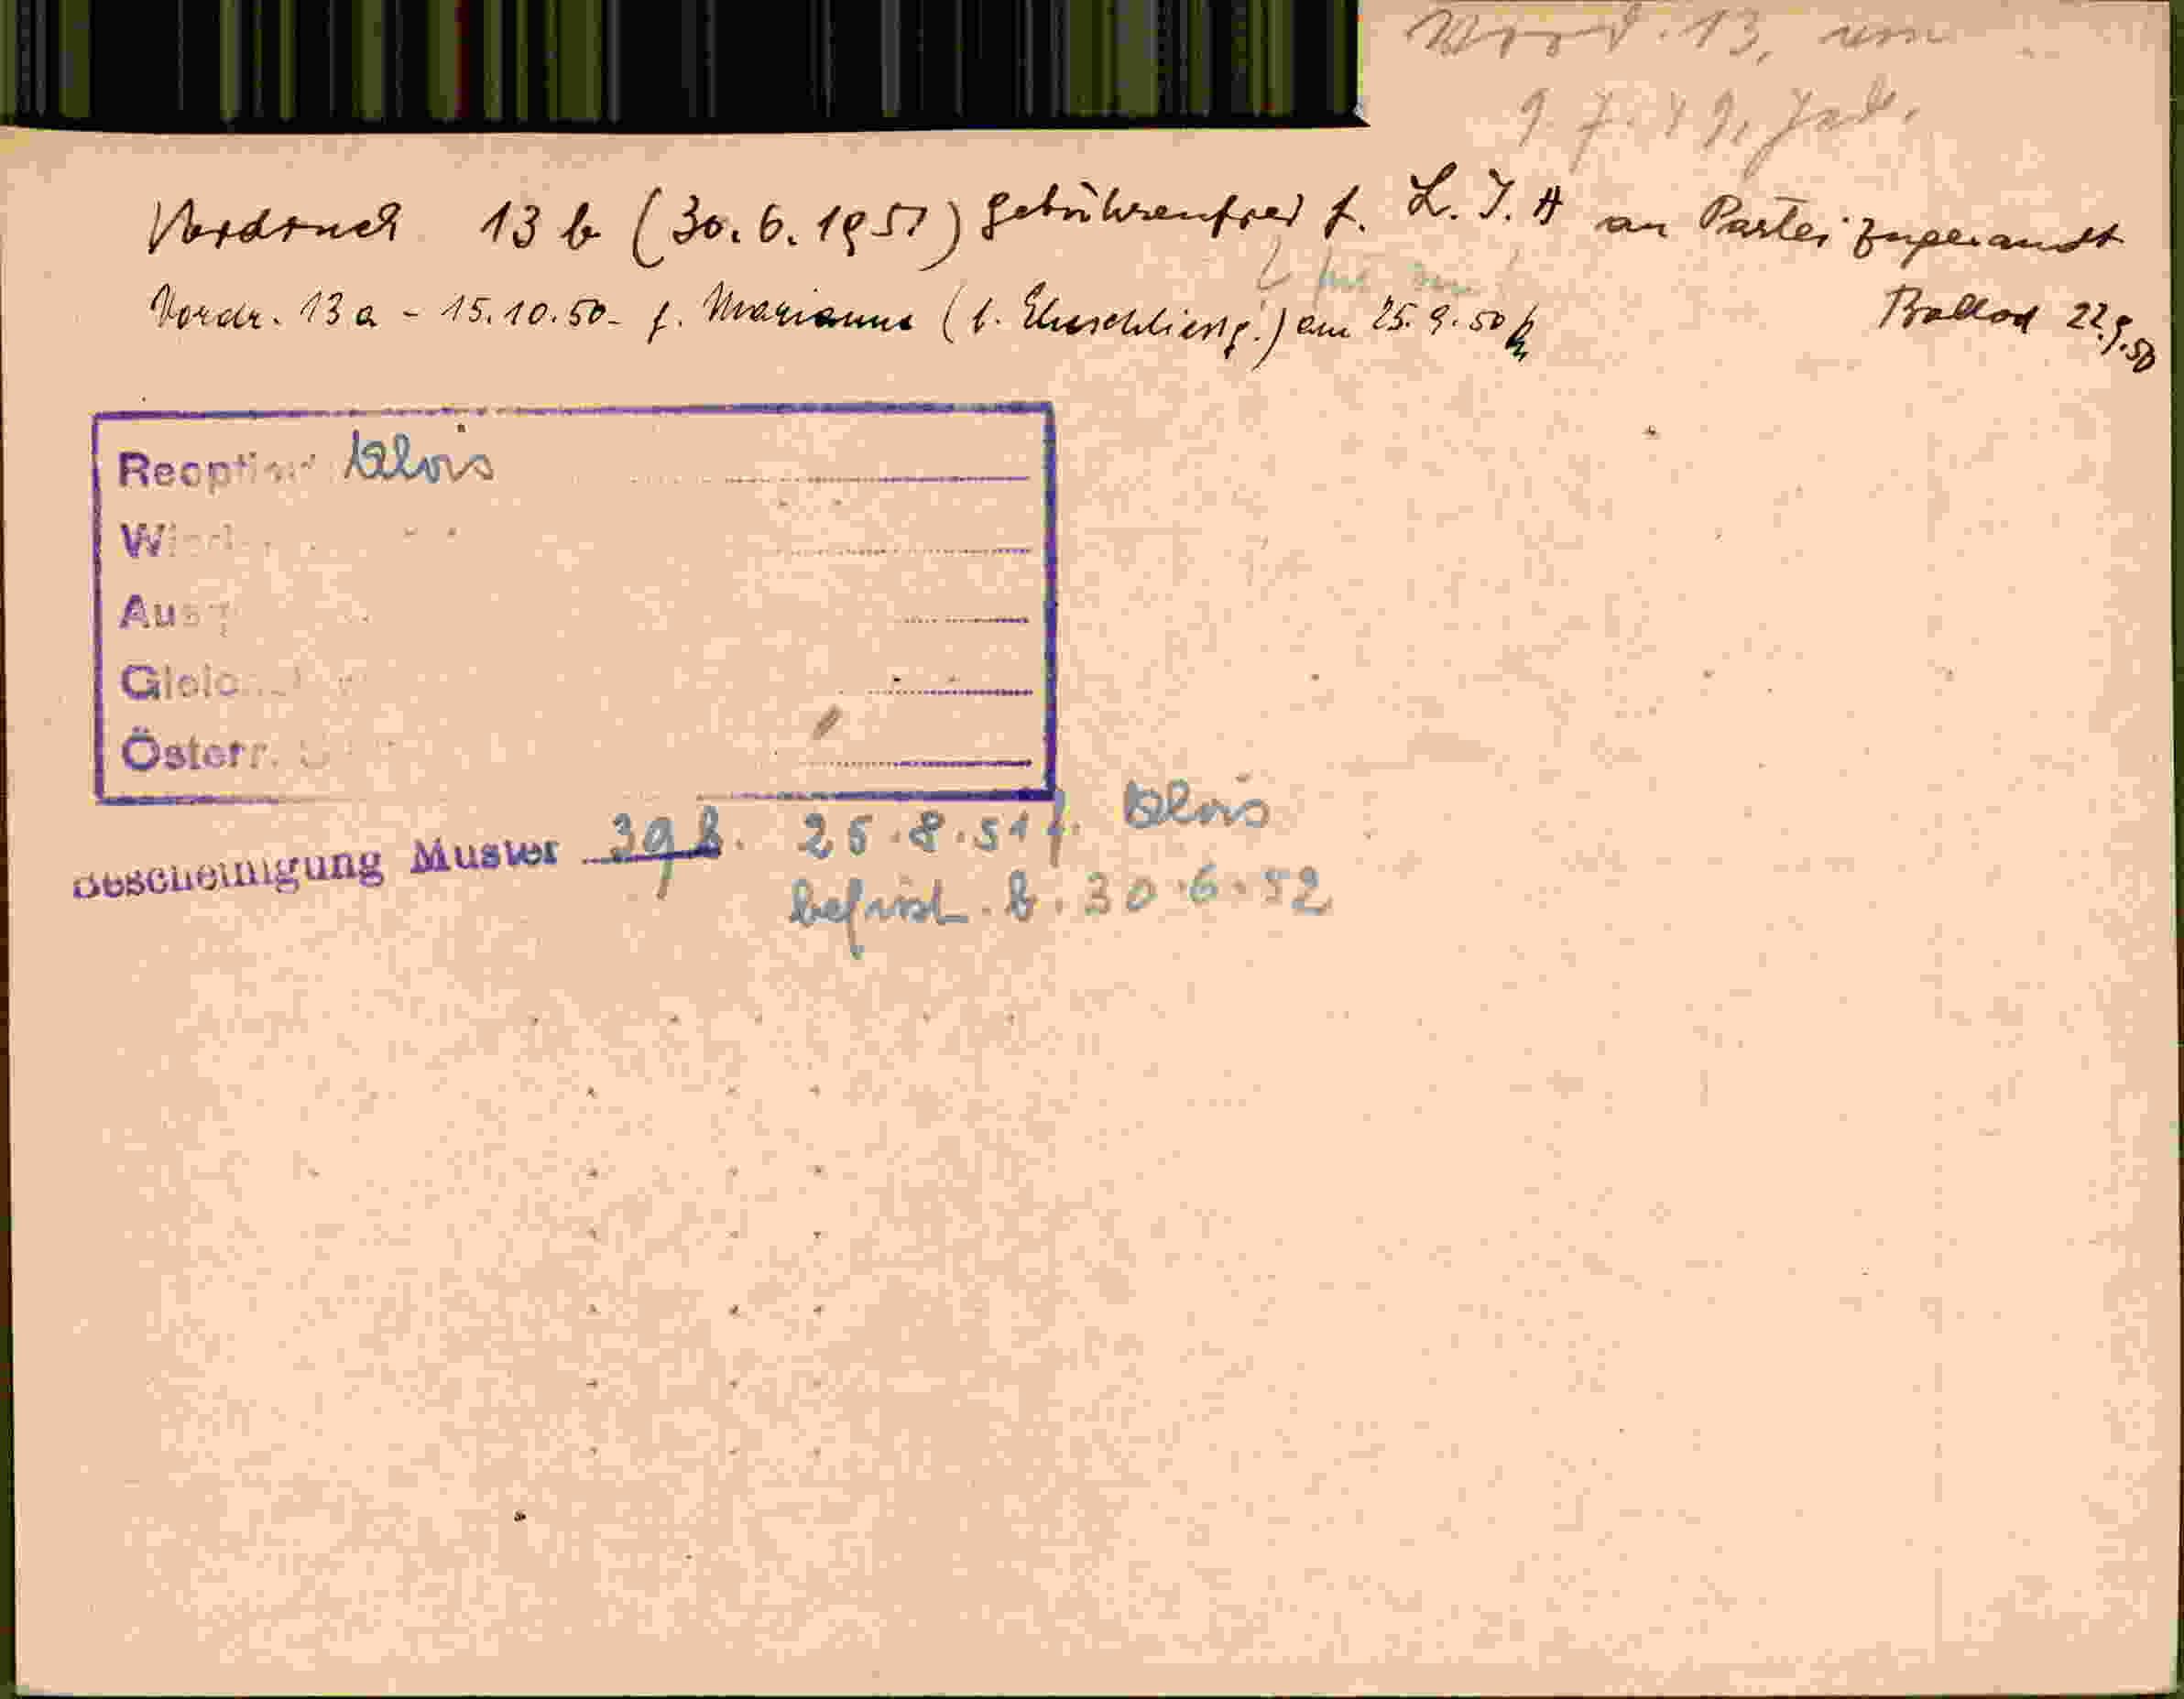 Vord. 13, um
9.7.49,
Vordruck 13 b (30.6.1951) gebührenfrei f. L. I. A an Partei zugesandt
Vordr. 13 a - 15.10.50 - f. Marianne (b. Eheschliessg.) am 25.9.50
Ballod 22.9.50
Reoption: Alois
Österr.
Bescheinigung Muster 39 b. 25.8.51 f. Alois
befrist. b. 30.6.52